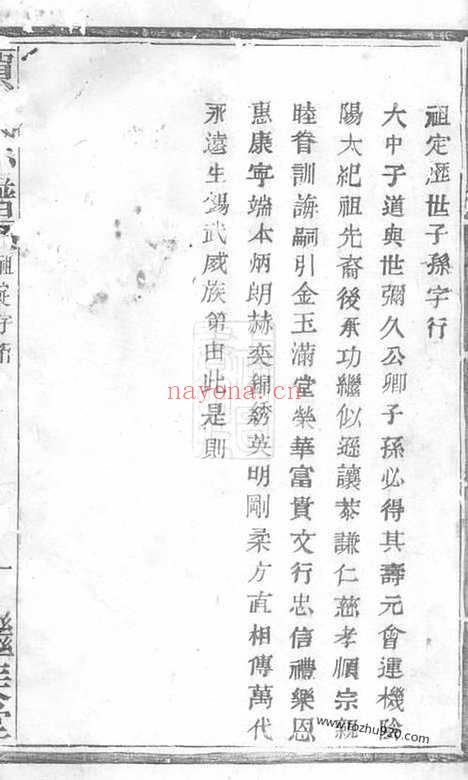 祖定歷世子孫字行
大中子道與世彌久公卿子孫必得其壽元會運機陰
陽太紀祖先裔後承功繼似遜讓恭謙仁慈孝順宗統
睦眷訓誨嗣引金玉滿堂榮華富貴文行忠信禮樂恩
惠康寧端本炳朗赫奕錦綉英明剛柔方直相傳萬代
永遠生錫武威族第由此是則
譜
祖定字
一
堂
nayona.cn
www.fozhu920.com